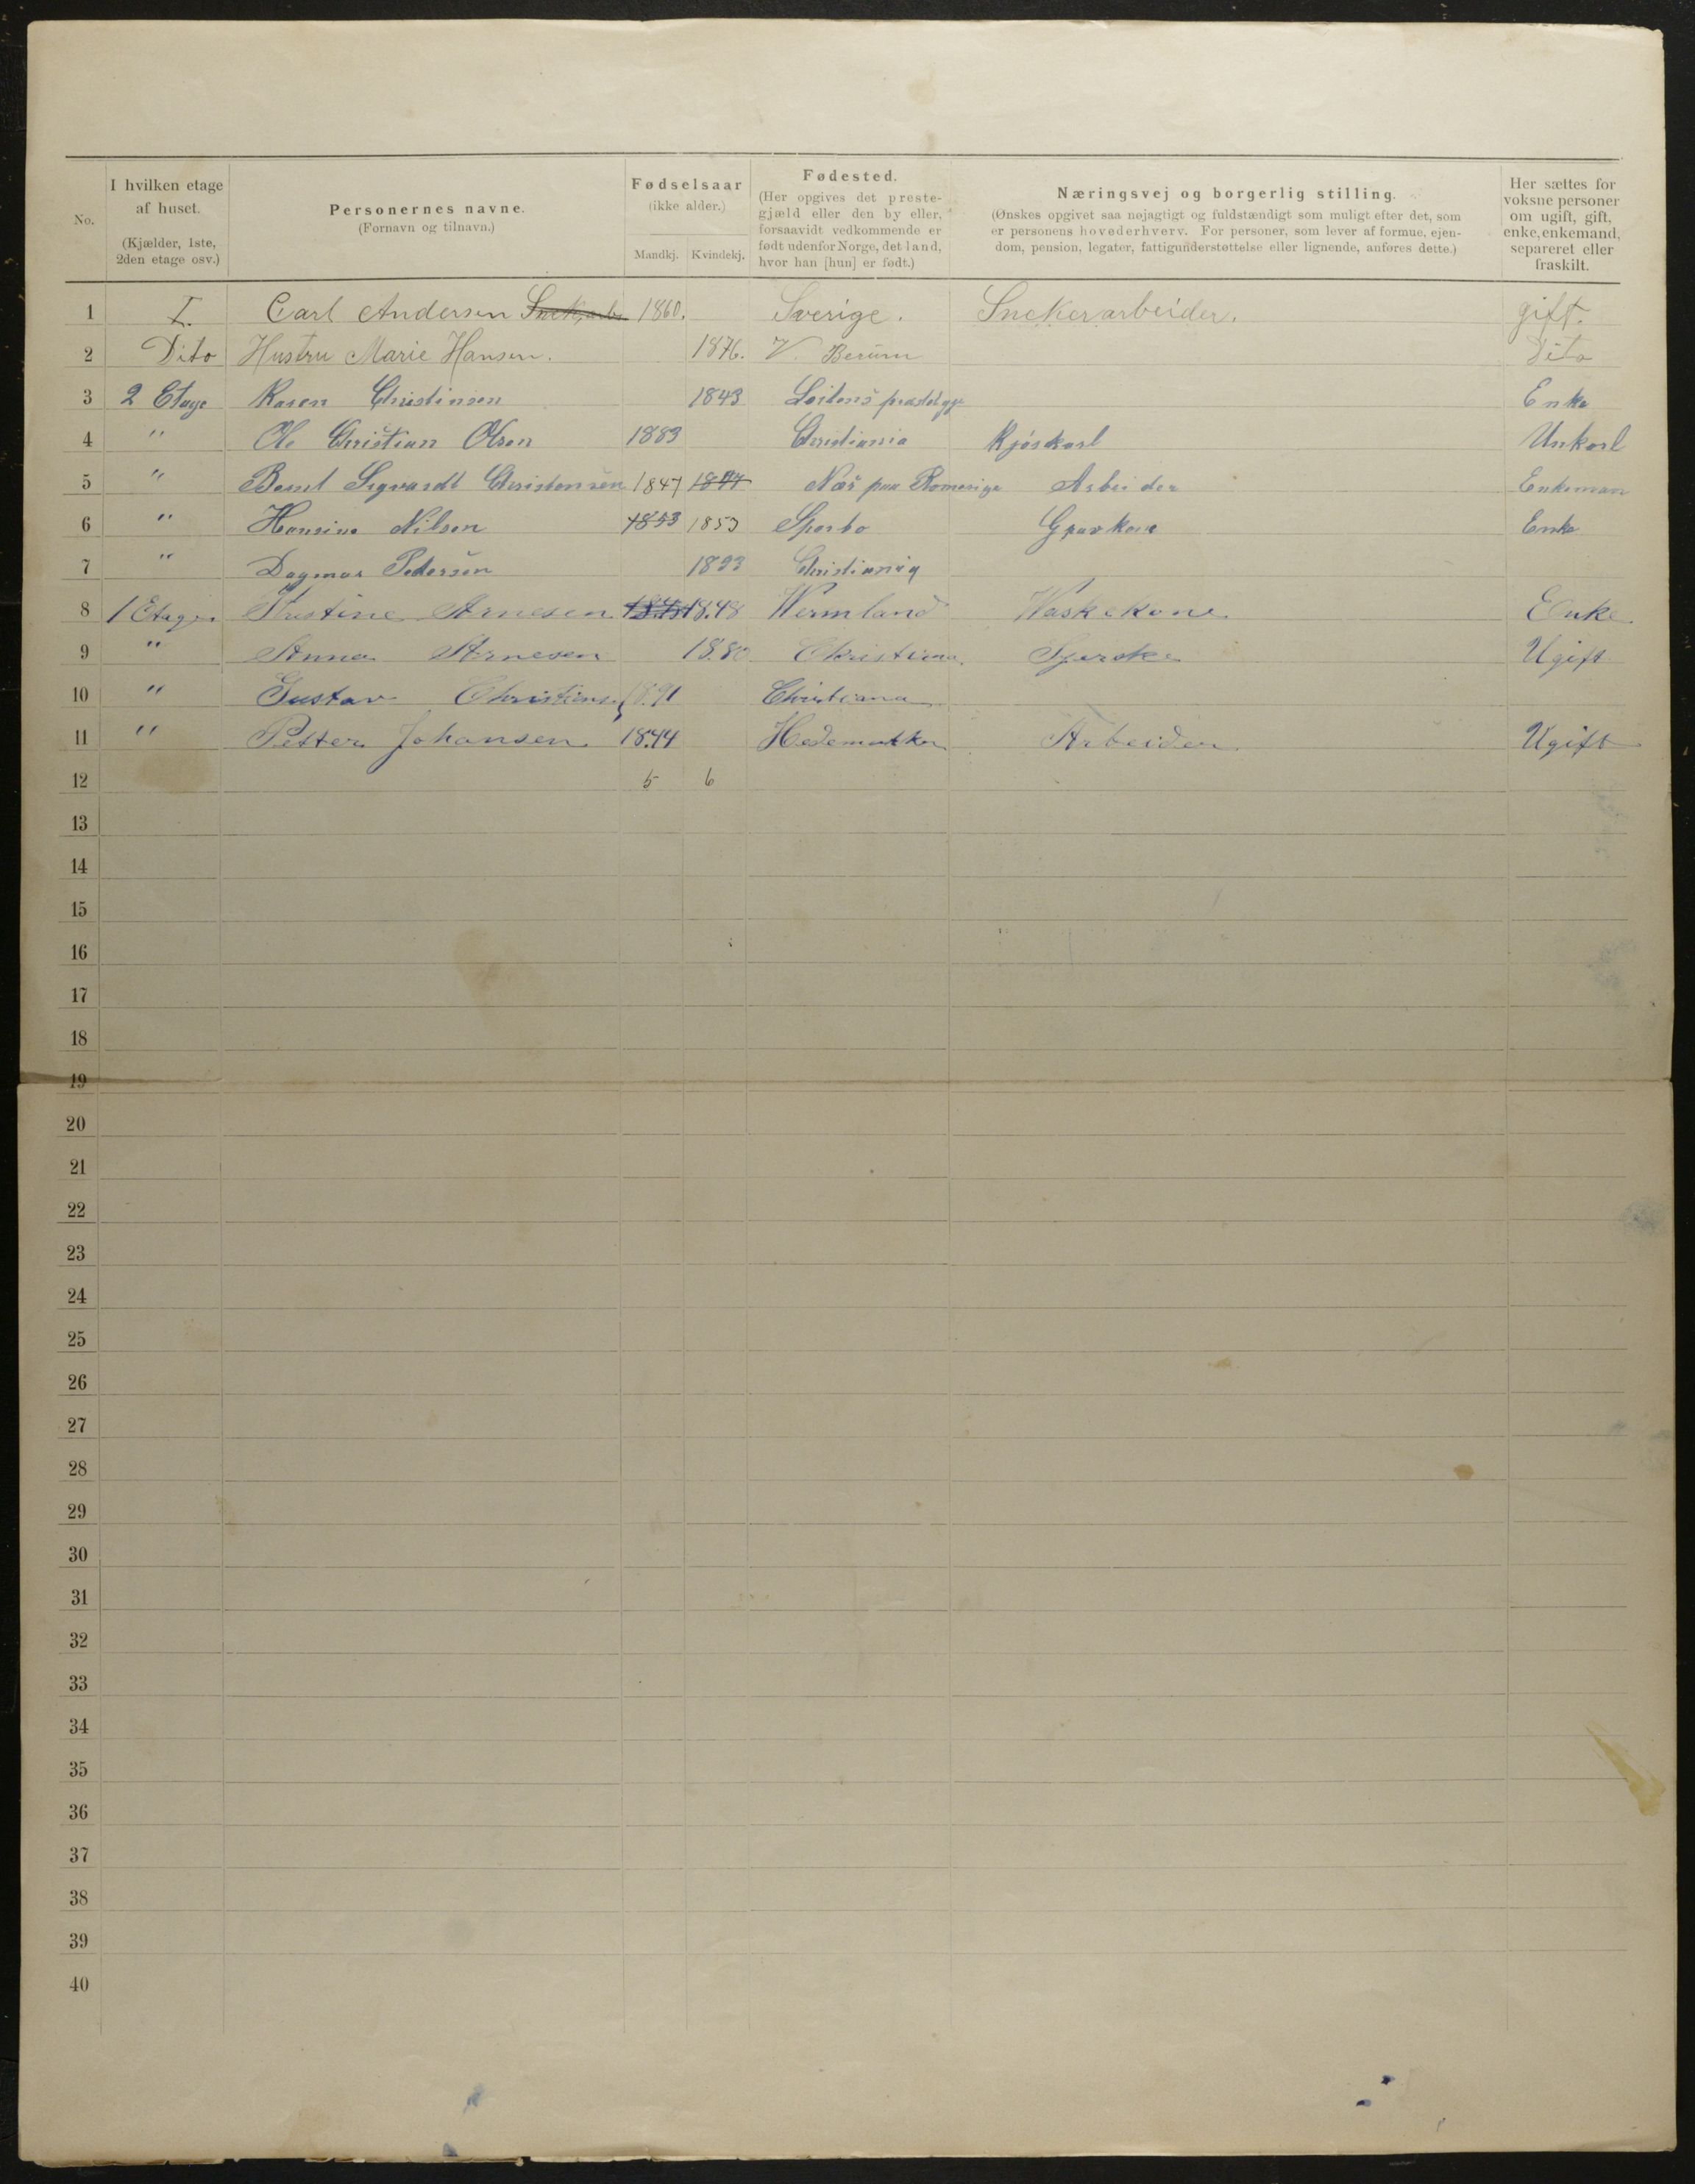 No. | I hvilken etage af huset. (Kjælder, 1ste, 2den etage osv.) | Personernes navne. (Fornavn og tilnavn.) | Fødselsaar (ikke alder.) Mandkj. Kvindekj. | Fødested. (Her opgives det prestegjæld eller den by eller, forsaavidt vedkommende er født udenfor Norge, det land, hvor han [hun] er født.) | Næringsvej og borgerlig stilling. (Ønskes opgivet saa nøjagtigt og fuldstændigt som muligt efter det, som er personens hovederhverv. For personer, som lever af formue, ejendom, pension, legater, fattigunderstøttelse eller lignende, anføres dette.) | Her sættes for voksne personer om ugift, gift, enke, enkemand, separeret eller fraskilt.
1 I. Carl Andersen 1860. Sverige. Snekerarbeider. gift.
2 Dito Hustru Marie Hansen. 1876. V. Berum Dito
3 2 Etage Karen Christinsen 1843 Enke
4 " Ole Christian Olsen 1883 Christiania Unkarl
5 " Sigvardt Christensen 1847 1847 Næs paa Romerige Arbeider Enkeman
6 " Hansine Nilsen 1853 1853 Enke
7 " Dagmar Pedersen 1893 Christiania
8 1 Etage Kristine Arnesen 1848 Wermland Waskekone Enke
9 " Anna Arnesen 1880 Christiana Ugift
10 " Gustav 1891 Christiana
11 " Petter Johansen 1844 Arbeider Ugift
12 5 6
13
14
15
16
17
18
19
20
21
22
23
24
25
26
27
28
29
30
31
32
33
34
35
36
37
38
39
40